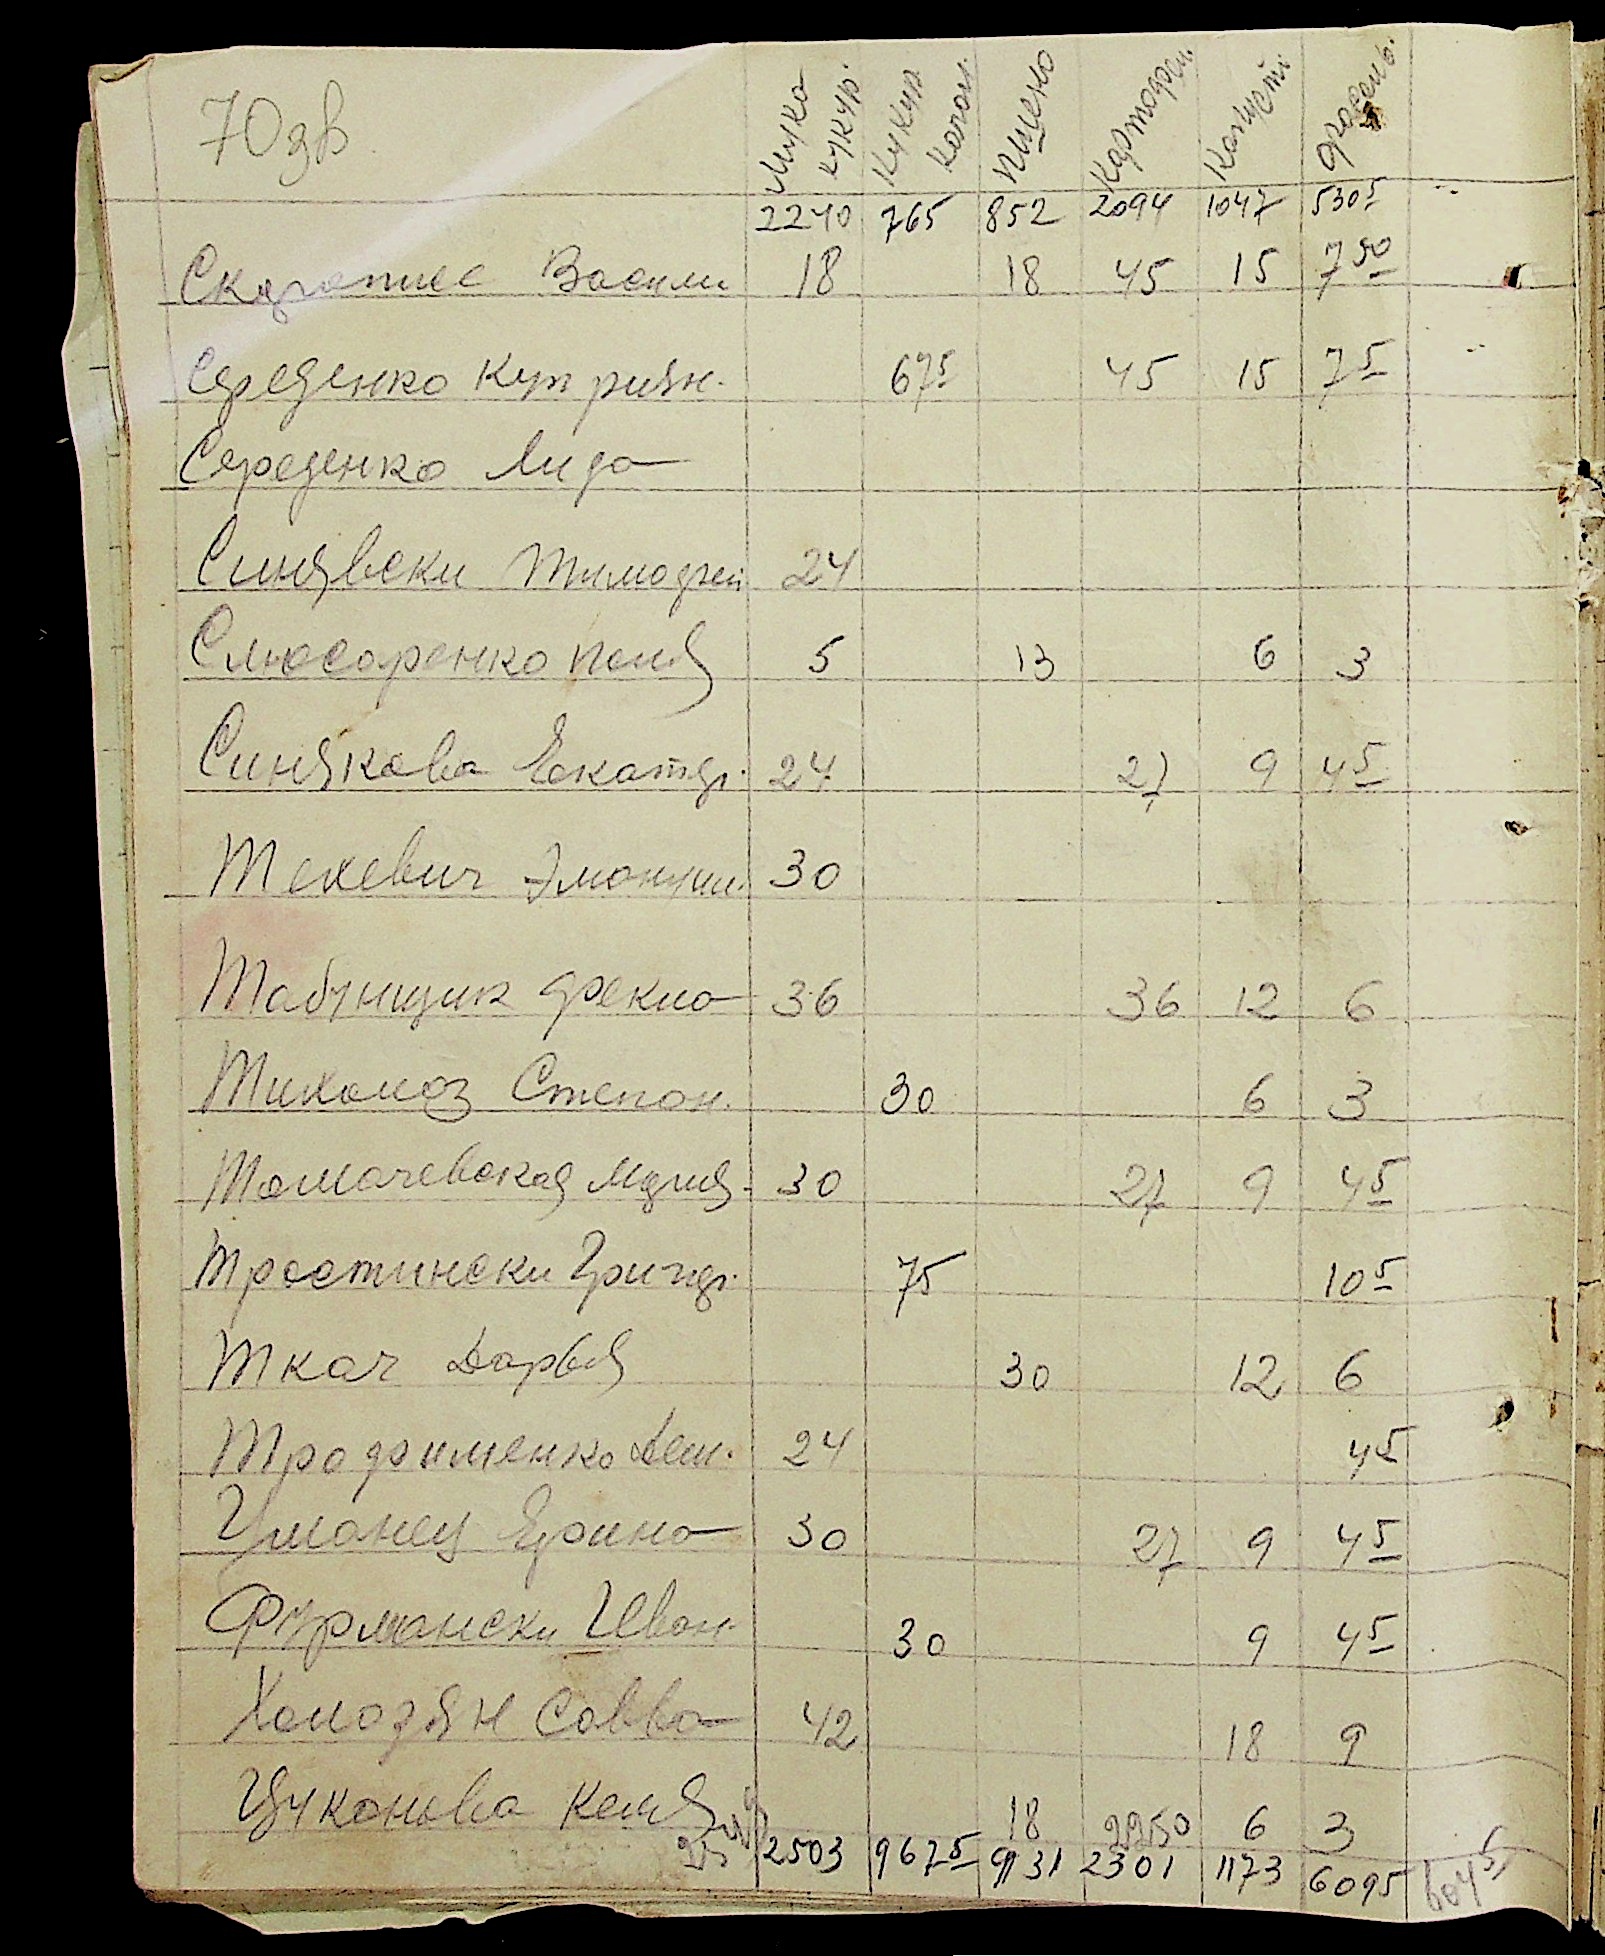 70 дв.
Мука кукур. Кукур. качан. Пшено Картофел. Капуста Фасоль.
2240 765 852 2094 1047 530 5
Васили 18 18 45 15 7 50
Середенко Куприян. 67 5 45 15 7 5
Середенко Лида
Синявски Тимофей 24
Слюсаренко Поля 5 13 6 3
Синякова Екатер. 24 27 9 4 5
Текевич Эмонуил. 30
Табунщик Фекла 36 36 12 6
Тихолоз Степан. 30 6 3
Томачевская Мария. 30 27 9 4 5
Тростински Григор. 75 10 5
Ткач Дарья 30 12 6
Трофименко Дем. 24 4 5
Уманец Ерина 30 27 9 4 5
Фурмански Иван. 30 9 4 5
Холодян Савва 42 18 9
Цуканова Келя 18 22 50 6 3
2503 967 5 931 2301 1173 609 5 604 5